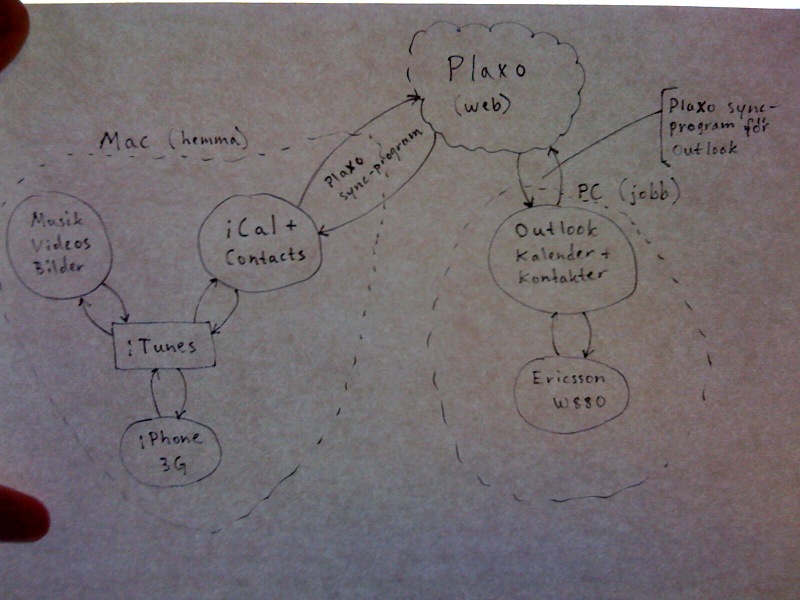 Plaxo
(web)
Plaxo sync-
program för
Outlook
Mac (hemma)
Plaxo
sync-program
PC (jobb)
Musik
Videos
Bilder
iCal +
Contacts
Outlook
Kalender +
Kontakter
iTunes
Ericsson
W880
iPhone
3G